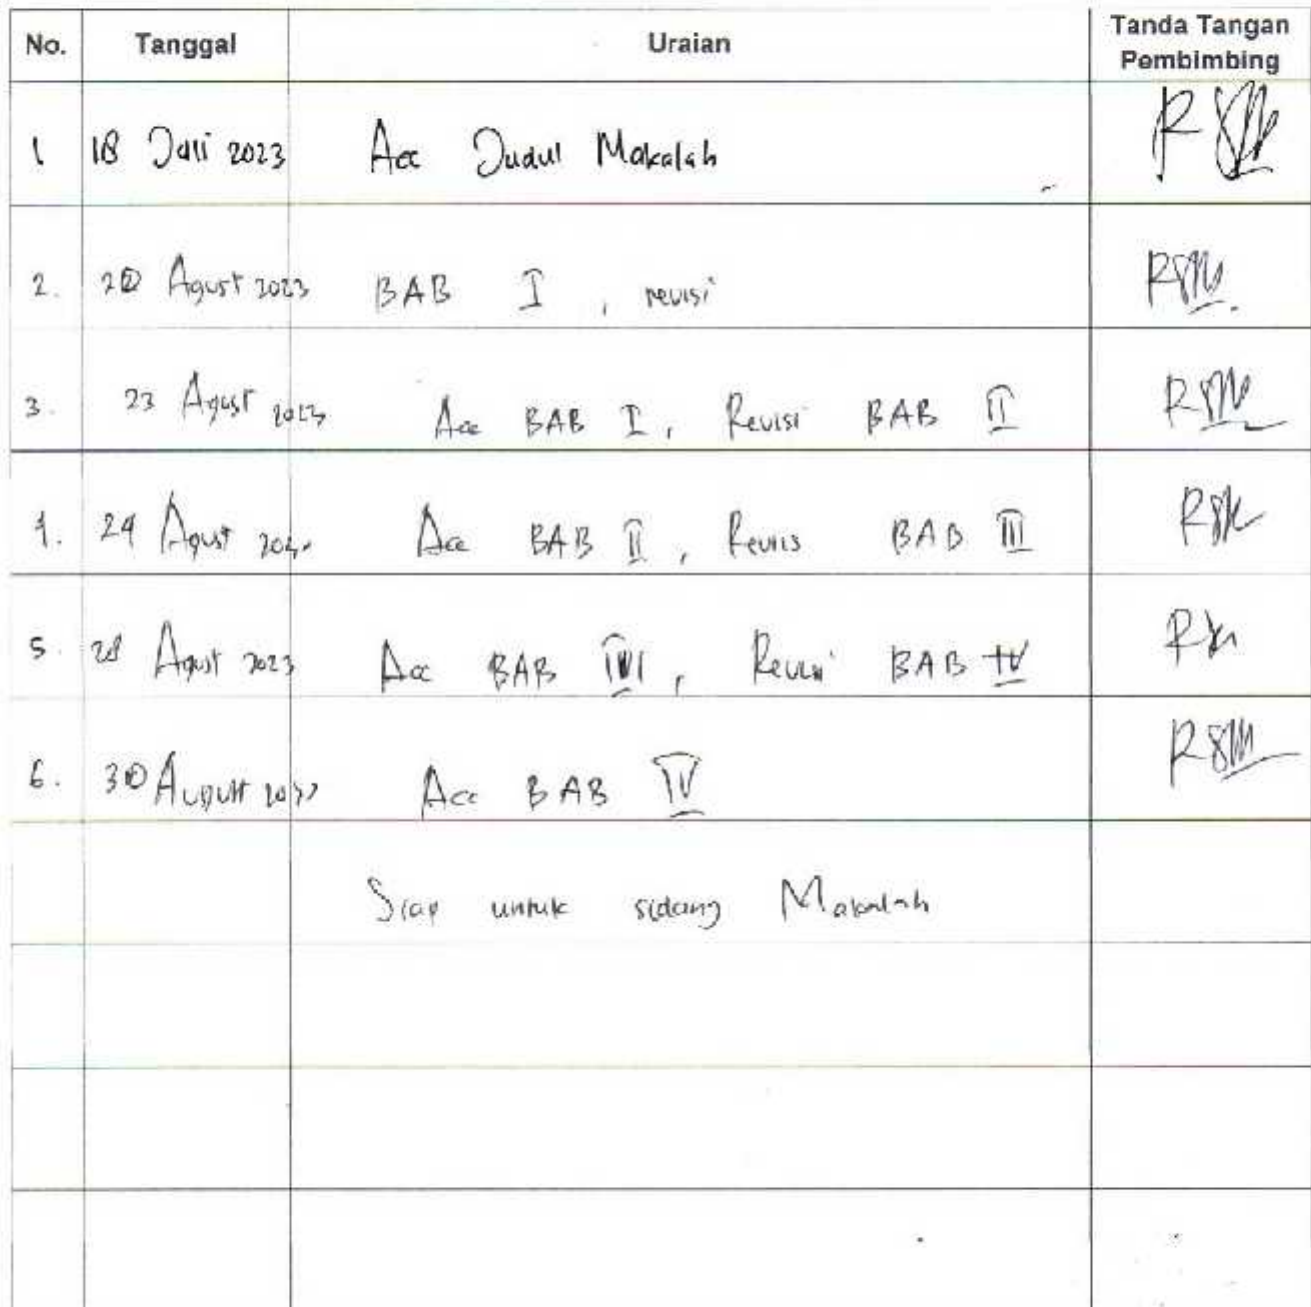 No. Tanggal Uraian Tanda Tangan Pembimbing
1 18 Juli 2023 Acc Judul Makalah
2. 20 Agust 2023 BAB I , revisi
3. 23 Agust 2023 Acc BAB I, Revisi BAB II
4. 24 Agust Acc BAB II, Revris BAB III
5. 28 Agust 2023 Acc BAB III, Revisi BAB IV
6. 30 August Acc BAB IV
Siap untuk sidang Makalah